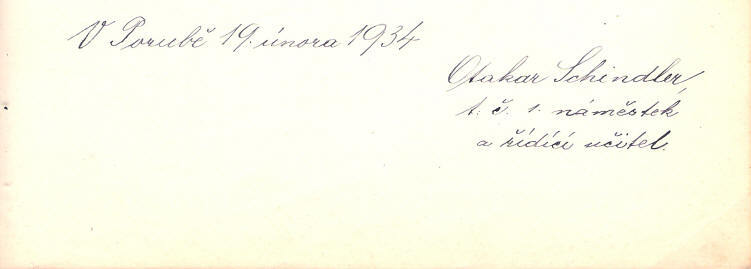 V Porubě 19. února 1934
Otakar Schindler,
t. č. 1. náměstek
a řídící učitel.